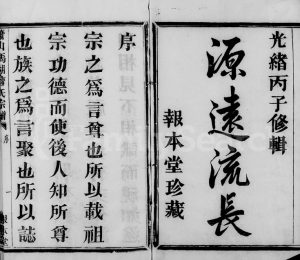 光緒丙子修輯
源遠流長
報本堂珍藏
序
宗之爲言尊也所以載祖
宗功德而使後人知所尊
也族之爲言聚也所以誌